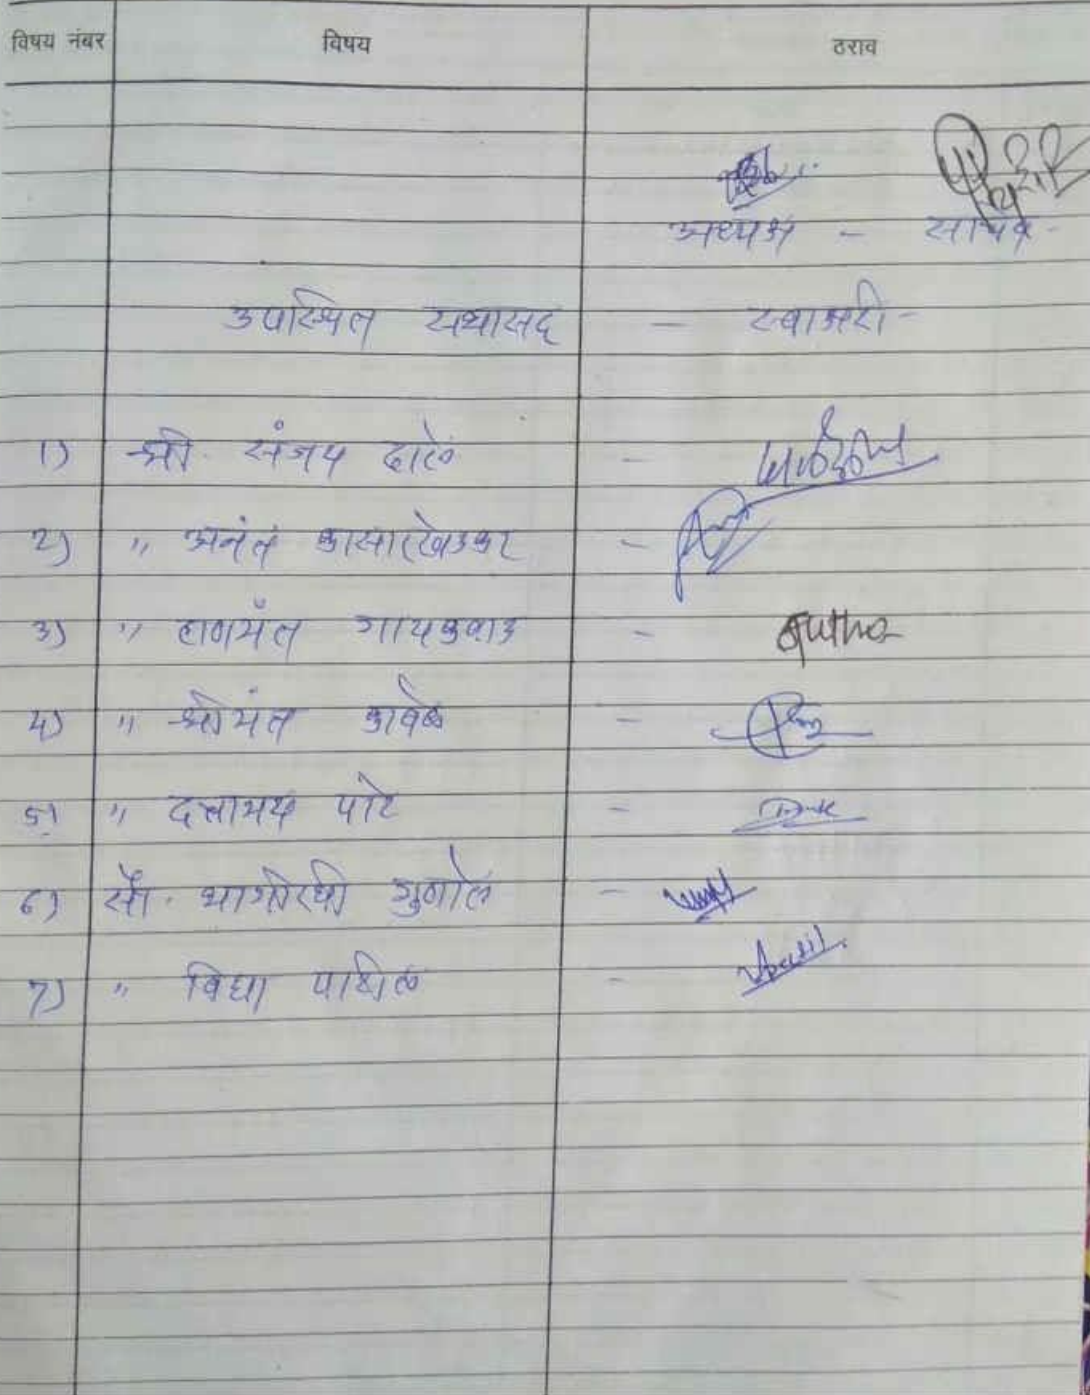 विषय नंबर विषय ठराव
अध्यक्ष - सचिव -
उपस्थित सभासद - स्वाक्षरी -
1) श्री. संजय दाळे -
2) " अनंत कासारखेडकर -
3) " हणमंत गायकवाड -
4) " श्रीमंत कांबळे -
5) " दत्तात्रय पोटे -
6) सौ. भागीरथी गुणाले -
7) " विद्या पाटील -